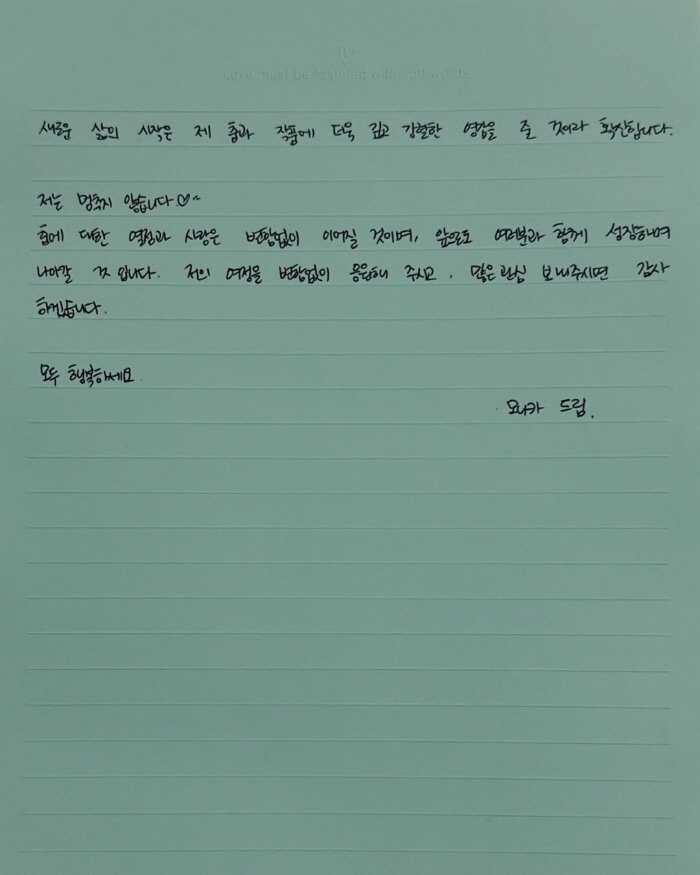 Love must be fostered with soft words
새로운 삶의 시작은 제 춤과 작품에 더욱 깊고 강렬한 영감을 줄 것이라 확신합니다.
저는 멈추지 않습니다♡~
춤에 대한 열정과 사랑은 변함없이 이어질 것이며, 앞으로도 여러분과 함께 성장하며
나아갈 것 입니다. 저의 여정을 변함없이 응원해 주시고, 많은 관심 보내주시면 감사
하겠습니다.
모두 행복하세요
모니카 드림.